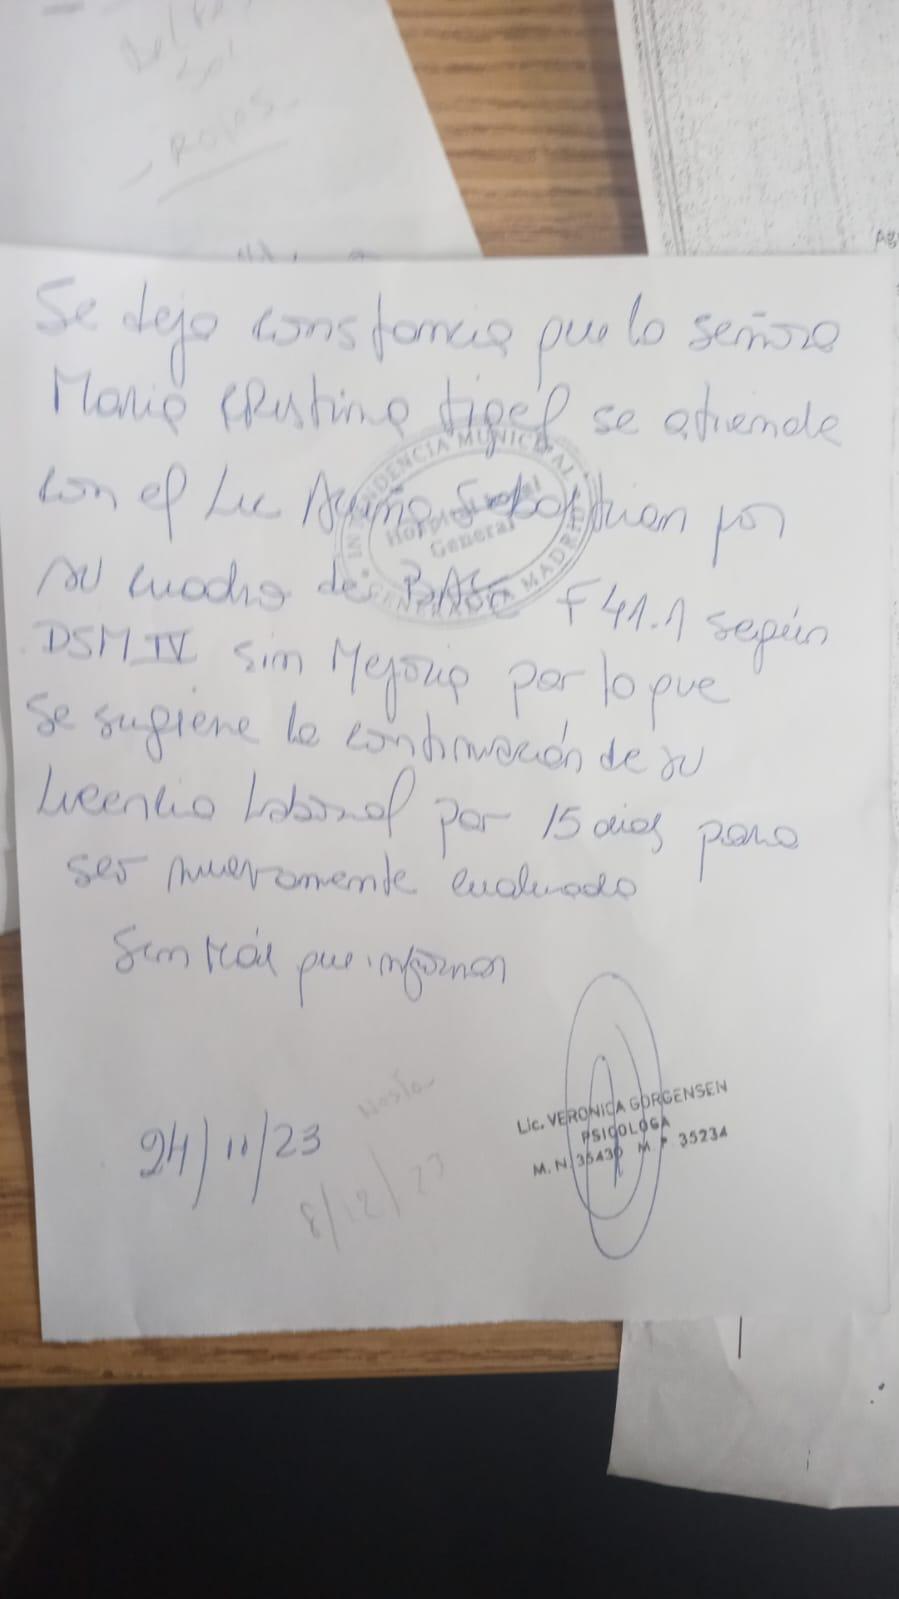 ROJAS
Se deja constancia que la señora
Maria Cristina Tigel se atiende
con el Lic Sebastian por
su cuadro de BASE F41.1 según
DSM IV sin Mejoria por lo que
se sugiere la continuación de su
licencia Laboral por 15 dias para
ser nuevamente evaluada
Sin más que informar
INTENDENCIA MUNICIPAL
Hospital
General
GENERAL MADRID
Hasta
24/11/23
8/12/23
Lic. VERONICA GORGENSEN
PSICOLOGA
M. N. 35430 M. P. 35234